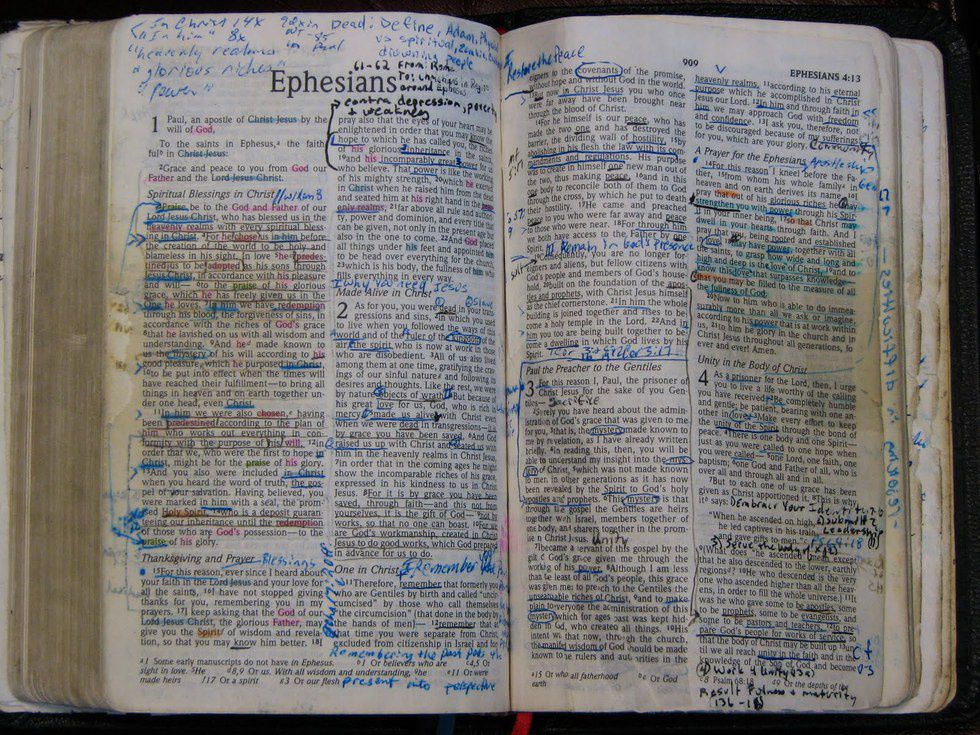 "In Christ 14x
"In him" 8x
"heavenly realms"
"glorious riches"
"Power"
Dead: Define, Adam,
vs spiritual,
drowning people
61-62 from Rom
contra depression,
+ weakness
Ephesians
1 Paul, an apostle of Christ Jesus by the
will of God,
To the saints in Ephesus, the faith-
ful in Christ Jesus:
2Grace and peace to you from God our
Father and the Lord Jesus Christ.
Spiritual Blessings in Christ
3Praise be to the God and Father of our
Lord Jesus Christ, who has blessed us in the
heavenly realms with every spiritual bless-
ing in Christ. 4For he chose us in him before
the creation of the world to be holy and
blameless in his sight. In love 5he predes-
tined us to be adopted as his sons through
Jesus Christ, in accordance with his pleasure
and will— 6to the praise of his glorious
grace, which he has freely given us in the
One he loves. 7In him we have redemption
through his blood, the forgiveness of sins, in
accordance with the riches of God's grace
8that he lavished on us with all wisdom and
understanding. 9And he made known to
us the mystery of his will according to his
good pleasure, which he purposed in Christ,
10to be put into effect when the times will
have reached their fulfillment—to bring all
things in heaven and on earth together un-
der one head, even Christ.
11In him we were also chosen, having
been predestined according to the plan of
him who works out everything in con-
formity with the purpose of his will, 12in
order that we, who were the first to hope in
Christ, might be for the praise of his glory.
13And you also were included in Christ
when you heard the word of truth, the gos-
pel of your salvation. Having believed, you
were marked in him with a seal, the prom-
ised Holy Spirit, 14who is a deposit guaran-
teeing our inheritance until the redemption
of those who are God's possession—to the
praise of his glory.
Thanksgiving and Prayer -Blessings
15For this reason, ever since I heard about
your faith in the Lord Jesus and your love for
all the saints, 16I have not stopped giving
thanks for you, remembering you in my
prayers. 17I keep asking that the God of our
Lord Jesus Christ, the glorious Father, may
give you the Spirit of wisdom and revela-
tion, so that you may know him better. 18I
1 Some early manuscripts do not have in Ephesus.
sight in love. 5He
made heirs f17 Or a spirit
pray also that the eyes of your heart may be
enlightened in order that you may know the
hope to which he has called you, the riches
of his glorious inheritance in the saints,
19and his incomparably great power for us
who believe. That power is like the working
of his mighty strength, 20which he exerted
in Christ when he raised him from the dead
and seated him at his right hand in the heav-
enly realms, 21far above all rule and author-
ity, power and dominion, and every title that
can be given, not only in the present age but
also in the one to come. 22And God placed
all things under his feet and appointed him
to be head over everything for the church,
23which is his body, the fullness of him who
fills everything in every way.
Why you need Jesus
Made Alive in Christ
2 As for you, you were dead in your trans-
gressions and sins, 2in which you used
to live when you followed the ways of this
world and of the ruler of the kingdom of the
air, the spirit who is now at work in those
who are disobedient. 3All of us also lived
among them at one time, gratifying the crav-
ings of our sinful nature and following its
desires and thoughts. Like the rest, we were
by nature objects of wrath. 4But because of
his great love for us, God, who is rich in
mercy, 5made us alive with Christ even
when we were dead in transgressions—it is
by grace you have been saved. 6And God
raised us up with Christ and seated us with
him in the heavenly realms in Christ Jesus,
7in order that in the coming ages he might
show the incomparable riches of his grace,
expressed in his kindness to us in Christ
Jesus. 8For it is by grace you have been
saved, through faith—and this not from
yourselves, it is the gift of God— 9not by
works, so that no one can boast. 10For we
are God's workmanship, created in Christ
Jesus to do good works, which God prepared
in advance for us to do.
One in Christ Remember
11Therefore, remember that formerly you
who are Gentiles by birth and called "uncir-
cumcised" by those who call themselves
"the circumcision" (that done in the body by
the hands of men)— 12remember that at
that time you were separate from Christ,
excluded from citizenship in Israel and for-
Remembering the past puts the
present into perspective
909
EPHESIANS 4:13
Restore the Peace
eigners to the covenants of the promise,
without hope and without God in the world.
13But now in Christ Jesus you who once
were far away have been brought near
through the blood of Christ.
14For he himself is our peace, who has
made the two one and has destroyed the
barrier, the dividing wall of hostility, 15by
abolishing in his flesh the law with its com-
mandments and regulations. His purpose
was to create in himself one new man out of
the two, thus making peace, 16and in this
one body to reconcile both of them to God
through the cross, by which he put to death
their hostility. 17He came and preached
peace to you who were far away and peace
to those who were near. 18For through him
we both have access to the Father by one
Spirit. Remain in God's presence
19Consequently, you are no longer for-
eigners and aliens, but fellow citizens with
God's people and members of God's house-
hold, 20built on the foundation of the apos-
tles and prophets, with Christ Jesus himself
as the chief cornerstone. 21In him the whole
building is joined together and rises to be-
come a holy temple in the Lord. 22And in
him you too are being built together to be-
come a dwelling in which God lives by his
Spirit.
Paul the Preacher to the Gentiles
3 For this reason I, Paul, the prisoner of
Christ Jesus for the sake of you Gen-
tiles—
2Surely you have heard about the adminis-
tration of God's grace that was given to me
for you, 3that is, the mystery made known to
me by revelation, as I have already written
briefly. 4In reading this, then, you will be
able to understand my insight into the mys-
tery of Christ, 5which was not made known
to men in other generations as it has now
been revealed by the Spirit to God's holy
apostles and prophets. 6This mystery is that
through the gospel the Gentiles are heirs
together with Israel, members together of
one body, and sharers together in the prom-
ise in Christ Jesus. Unity
7I became a servant of this gospel by the
gift of God's grace given me through the
working of his power. 8Although I am less
than the least of all God's people, this grace
was given me: to preach to the Gentiles the
unsearchable riches of Christ, 9and to make
plain to everyone the administration of this
mystery, which for ages past was kept hid-
den in God, who created all things. 10His
intent was that now, through the church,
the manifold wisdom of God should be made
known to the rulers and authorities in the
a15 Or whom all fatherhood
earth
heavenly realms, 11according to his eternal
purpose which he accomplished in Christ
Jesus our Lord. 12In him and through faith in
him we may approach God with freedom
and confidence. 13I ask you, therefore, not
to be discouraged because of my sufferings
for you, which are your glory.
A Prayer for the Ephesians
14For this reason I kneel before the Fa-
ther, 15from whom his whole family in
heaven and on earth derives its name. 16I
pray that out of his glorious riches he may
strengthen you with power through his Spir-
it in your inner being, 17so that Christ may
dwell in your hearts through faith. And I
pray that you, being rooted and established
in love, 18may have power, together with all
the saints, to grasp how wide and long and
high and deep is the love of Christ, 19and to
know this love that surpasses knowledge—
that you may be filled to the measure of all
the fullness of God.
20Now to him who is able to do immea-
surably more than all we ask or imagine,
according to his power that is at work within
us, 21to him be glory in the church and in
Christ Jesus throughout all generations, for
ever and ever! Amen.
Unity in the Body of Christ
4 As a prisoner for the Lord, then, I urge
you to live a life worthy of the calling
you have received. 2Be completely humble
and gentle; be patient, bearing with one an-
other in love. 3Make every effort to keep
the unity of the Spirit through the bond of
peace. 4There is one body and one Spirit—
just as you were called to one hope when
you were called— 5one Lord, one faith, one
baptism; 6one God and Father of all, who is
over all and through all and in all.
7But to each one of us grace has been
given as Christ apportioned it. 8This is why
it says: Embrace Your Identity
"When he ascended on high,
Leadership
and gave gifts to men."
9(What does "he ascended" mean except
that he also descended to the lower, earthly
regions? 10He who descended is the very
one who ascended higher than all the heav-
ens, in order to fill the whole universe.) 11It
was he who gave some to be apostles, some
to be prophets, some to be evangelists, and
some to be pastors and teachers, 12to pre-
pare God's people for works of service, so
that the body of Christ may be built up 13un-
til we all reach unity in the faith and in the
knowledge of the Son of God and become
8 Psalm 68:18
Result Fulness + maturity